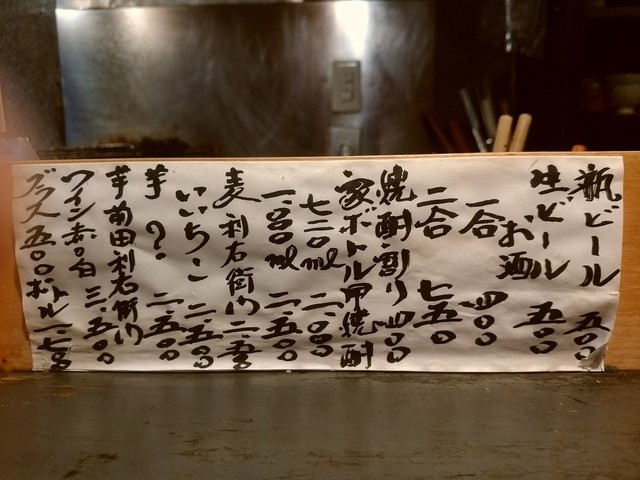 瓶ビール 五〇〇
生ビール 五〇〇
お酒
一合 四〇〇
二合 七五〇
焼酎割り 四〇〇
家ボトル 甲焼酎
七二〇ml 二、〇〇〇
一、〇〇〇ml 二、五〇〇
麦 利右衛門 二、五〇〇
いいちこ 二、五〇〇
芋 ? 二、五〇〇
芋 前田利右衛門
ワイン 赤・白 三、五〇〇
グラス 五〇〇 ボトル 一、七〇〇